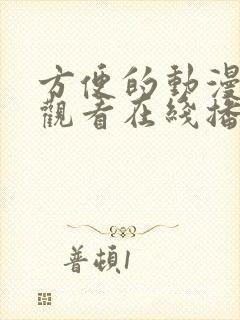 方便的動漫
觀看在綫播
普頓1